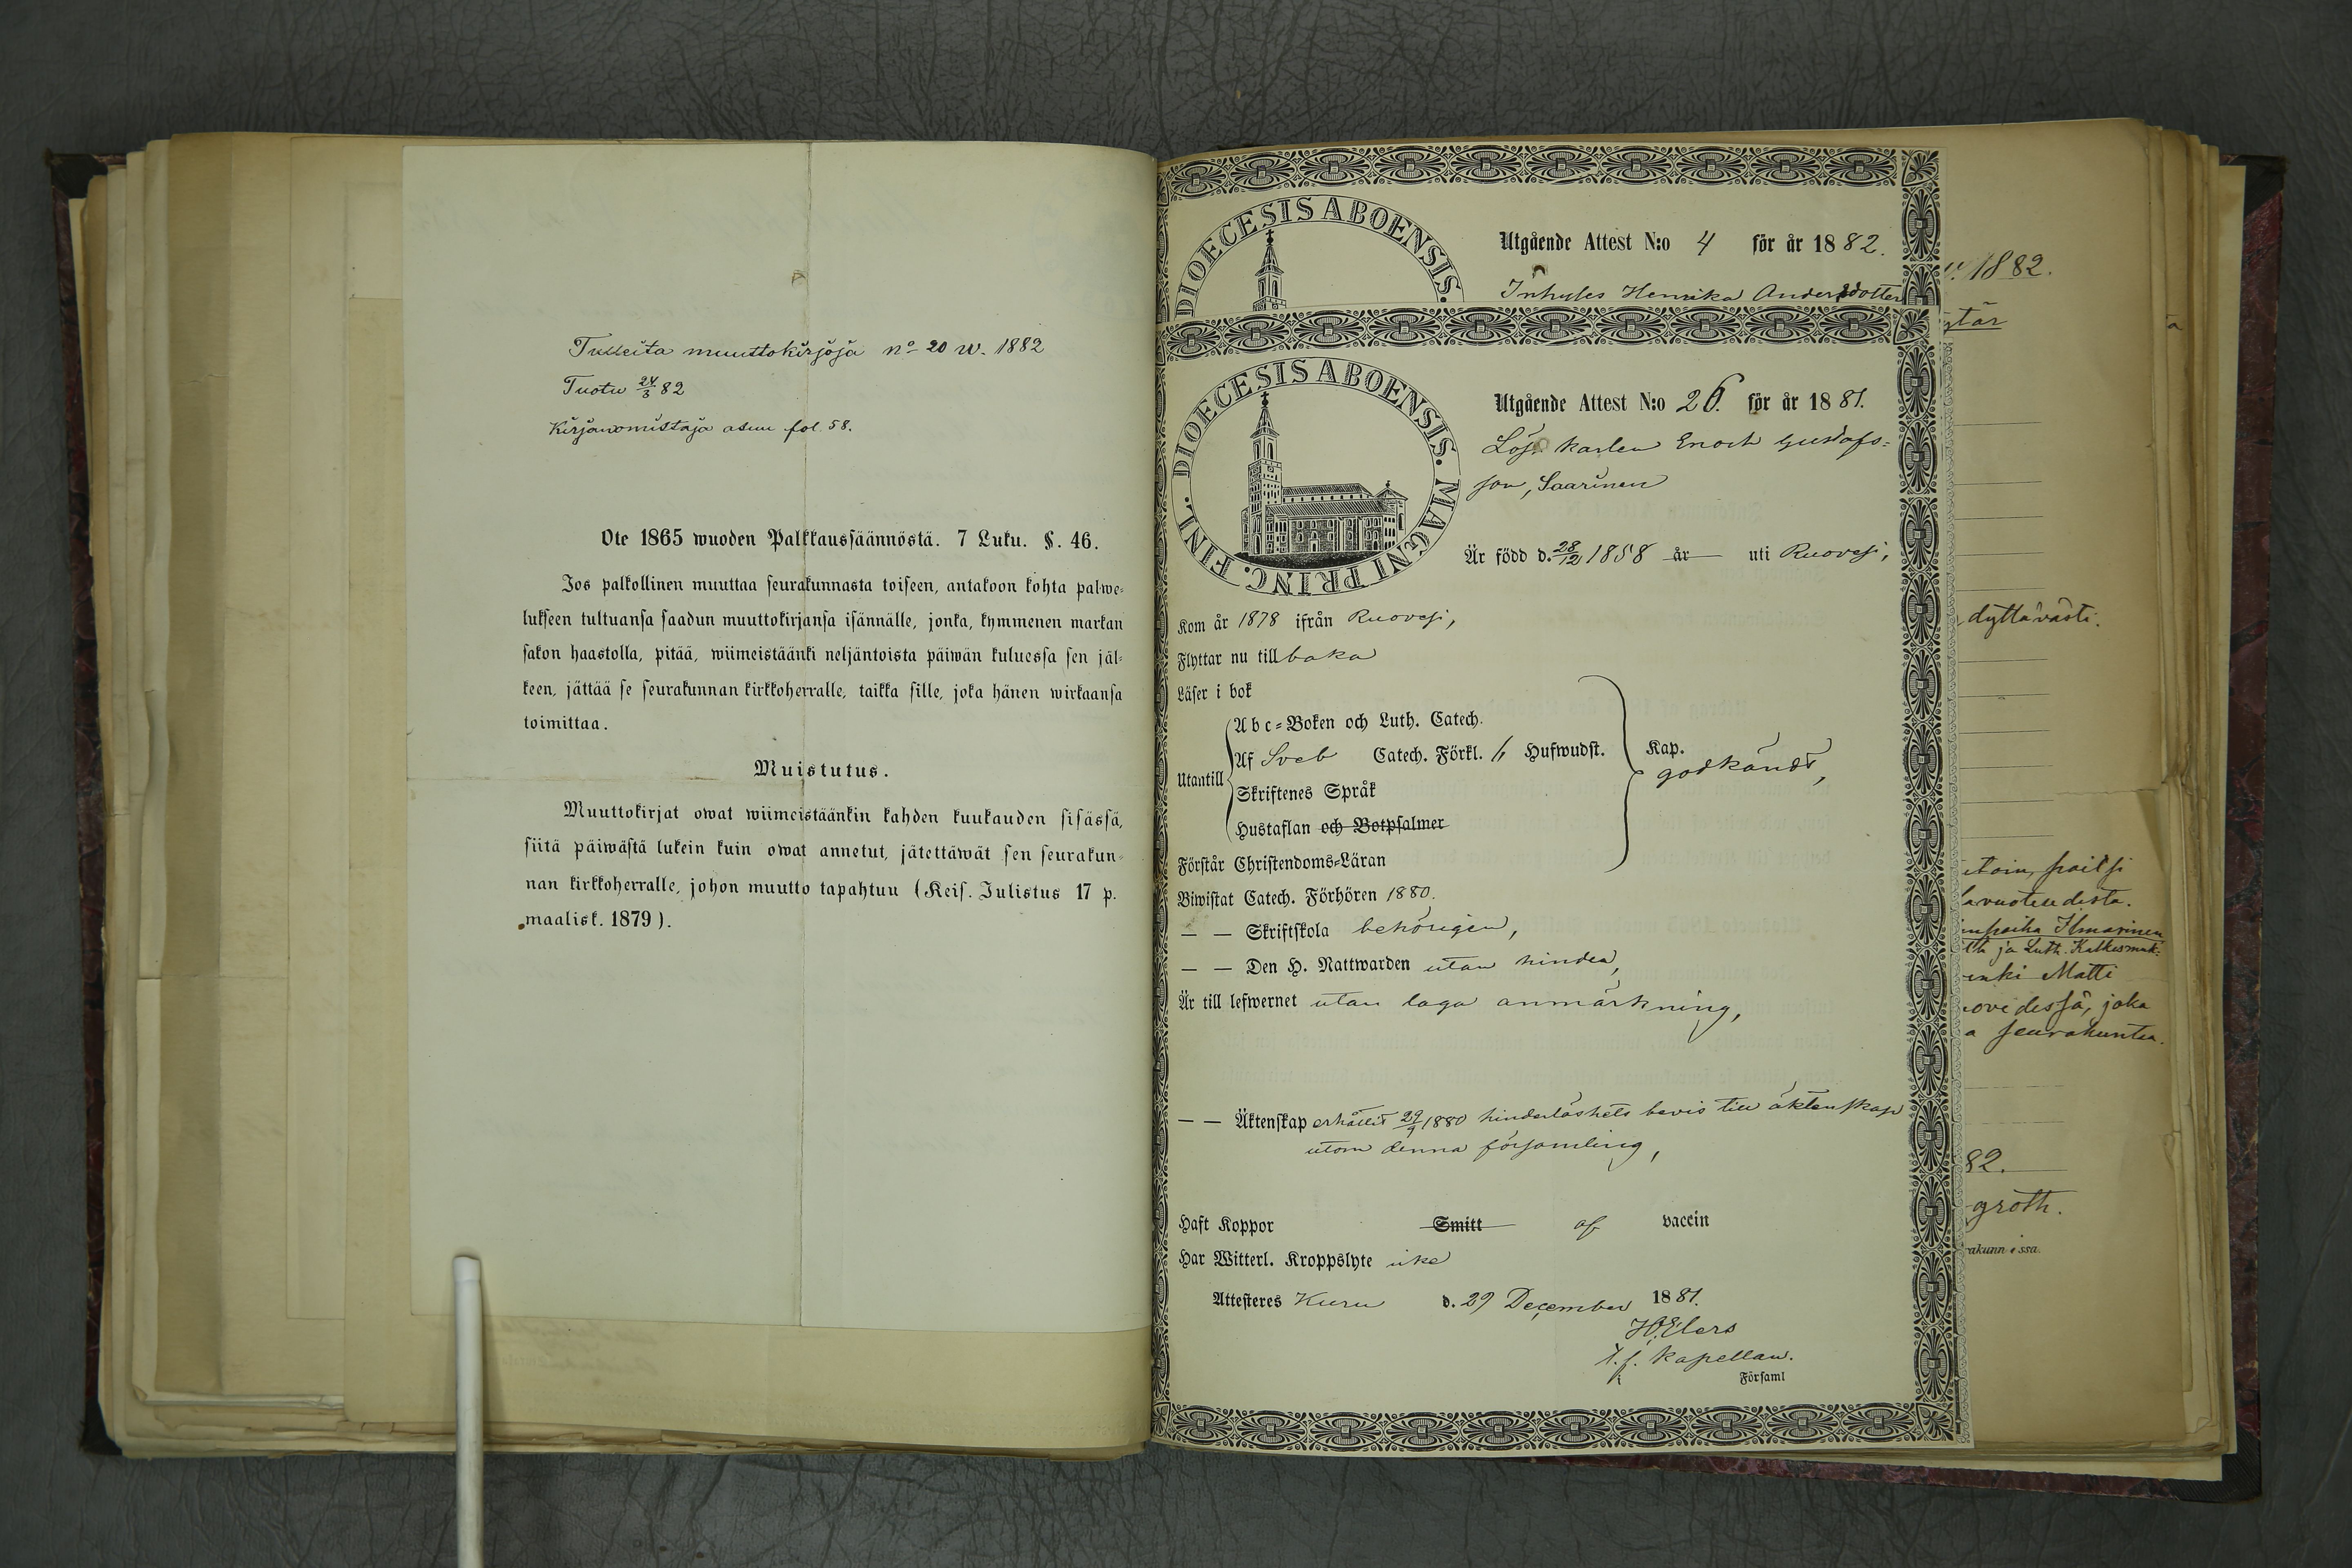 Tulleita muuttokirjoja no 20 w. 1882
Tuotu 24/3 82
Kirjanomistaja asuu fol. 58.
Ote 1865 wuoden Palkkaussäännöstä. 7 Luku. §. 46.
Jos palkollinen muuttaa seurakunnasta toiseen, antakoon kohta palwe-
lukseen tultuansa saadun muuttokirjansa isännälle, jonka, kymmenen markan
sakon haastolla, pitää, wiimeistäänki neljäntoista päiwän kuluessa sen jäl-
keen, jättää se seurakunnan kirkkoherralle, taikka sille, joka hänen wirkaansa
toimittaa.
Muistutus.
Muuttokirjat owat wiimeistäänkin kahden kuukauden sisässä,
siitä päiwästä lukein kuin owat annetut, jätettäwät sen seurakun-
nan kirkkoherralle, johon muutto tapahtuu (Keis. Julistus 17 p.
maalisk. 1879).
DIOECESIS ABOENSIS.
Utgående Attest N:o 4 för år 1882.
Inhyses Henrika Andersdotter
DIOECESIS ABOENSIS. MAGNI PRINC. FINL.
Utgående Attest N:o 26. för år 1881.
Lösk karlen Enoch Gustafs-
son, Saarinen
Är född d. 28/12 1858 år uti Ruovesi,
Kom år 1878 ifrån Ruovesi,
Flyttar nu till baka
Läser i bok
Utantill
Abc-Boken och Luth. Catech.
Af Sveb Catech. Förkl. 6 Hufwudst. Kap.
godkändt,
Skriftenes Språk
Hustaflan och Botpsalmer
Förstår Christendoms-Läran
Biwistat Catech. Förhören 1880.
— — Skriftskola behörigen,
— — Den H. Nattwarden utan hinder,
Är till lefwernet utan laga anmärkning,
— — Äktenskap erhållit 29/9 1880 hinderlöshets bevis till äktenskap
utom denna församling,
Haft Koppor Smitt af vaccin
Har Witterl. Kroppslyte icke
Attesteres Kuru d. 29 December 1881.
Elers
t. f. Kapellan.
Församl
1882.
dyttävästi.
paitsi
Ilmarinen
ja Luth. Katkesmuk:
Matti
joka
a seurakuntaa.
82.
groth.
akunnissa.